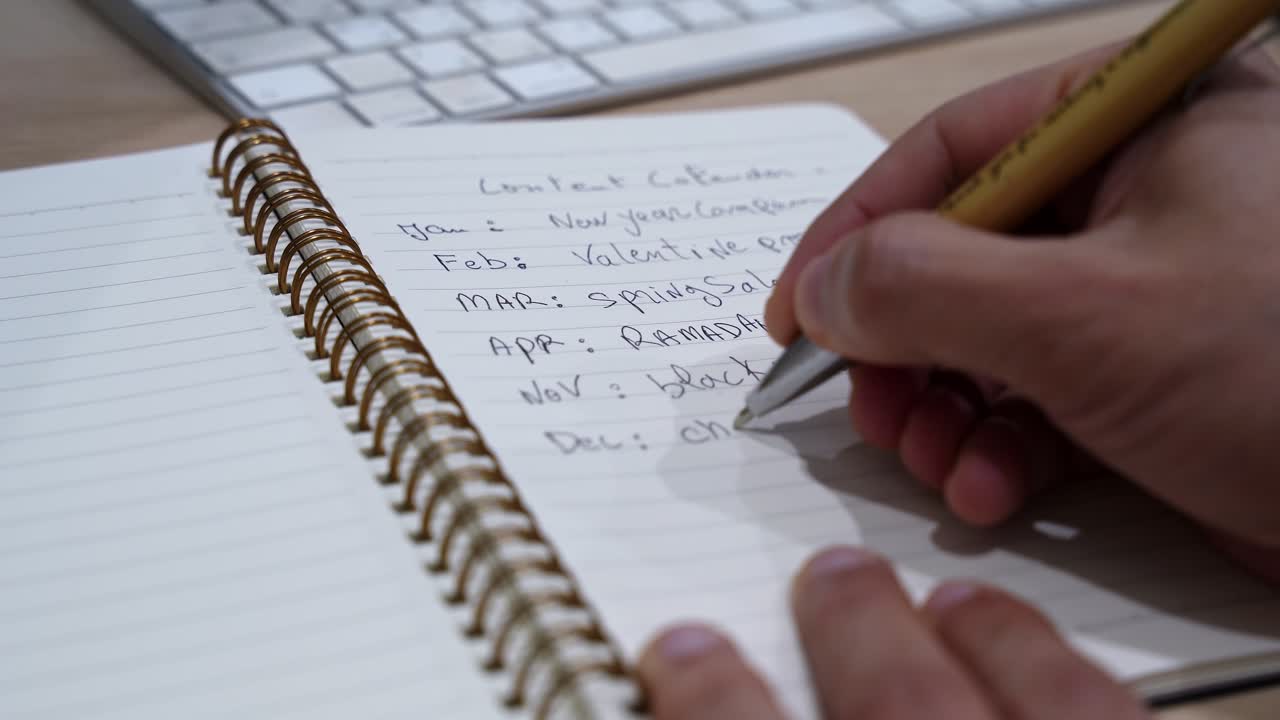 Content Calendar
Jan : New year Campa
Feb: Valentine pr
MAR: Spring Sale
APR : RAMADAN
NOV : black
Dec : ch